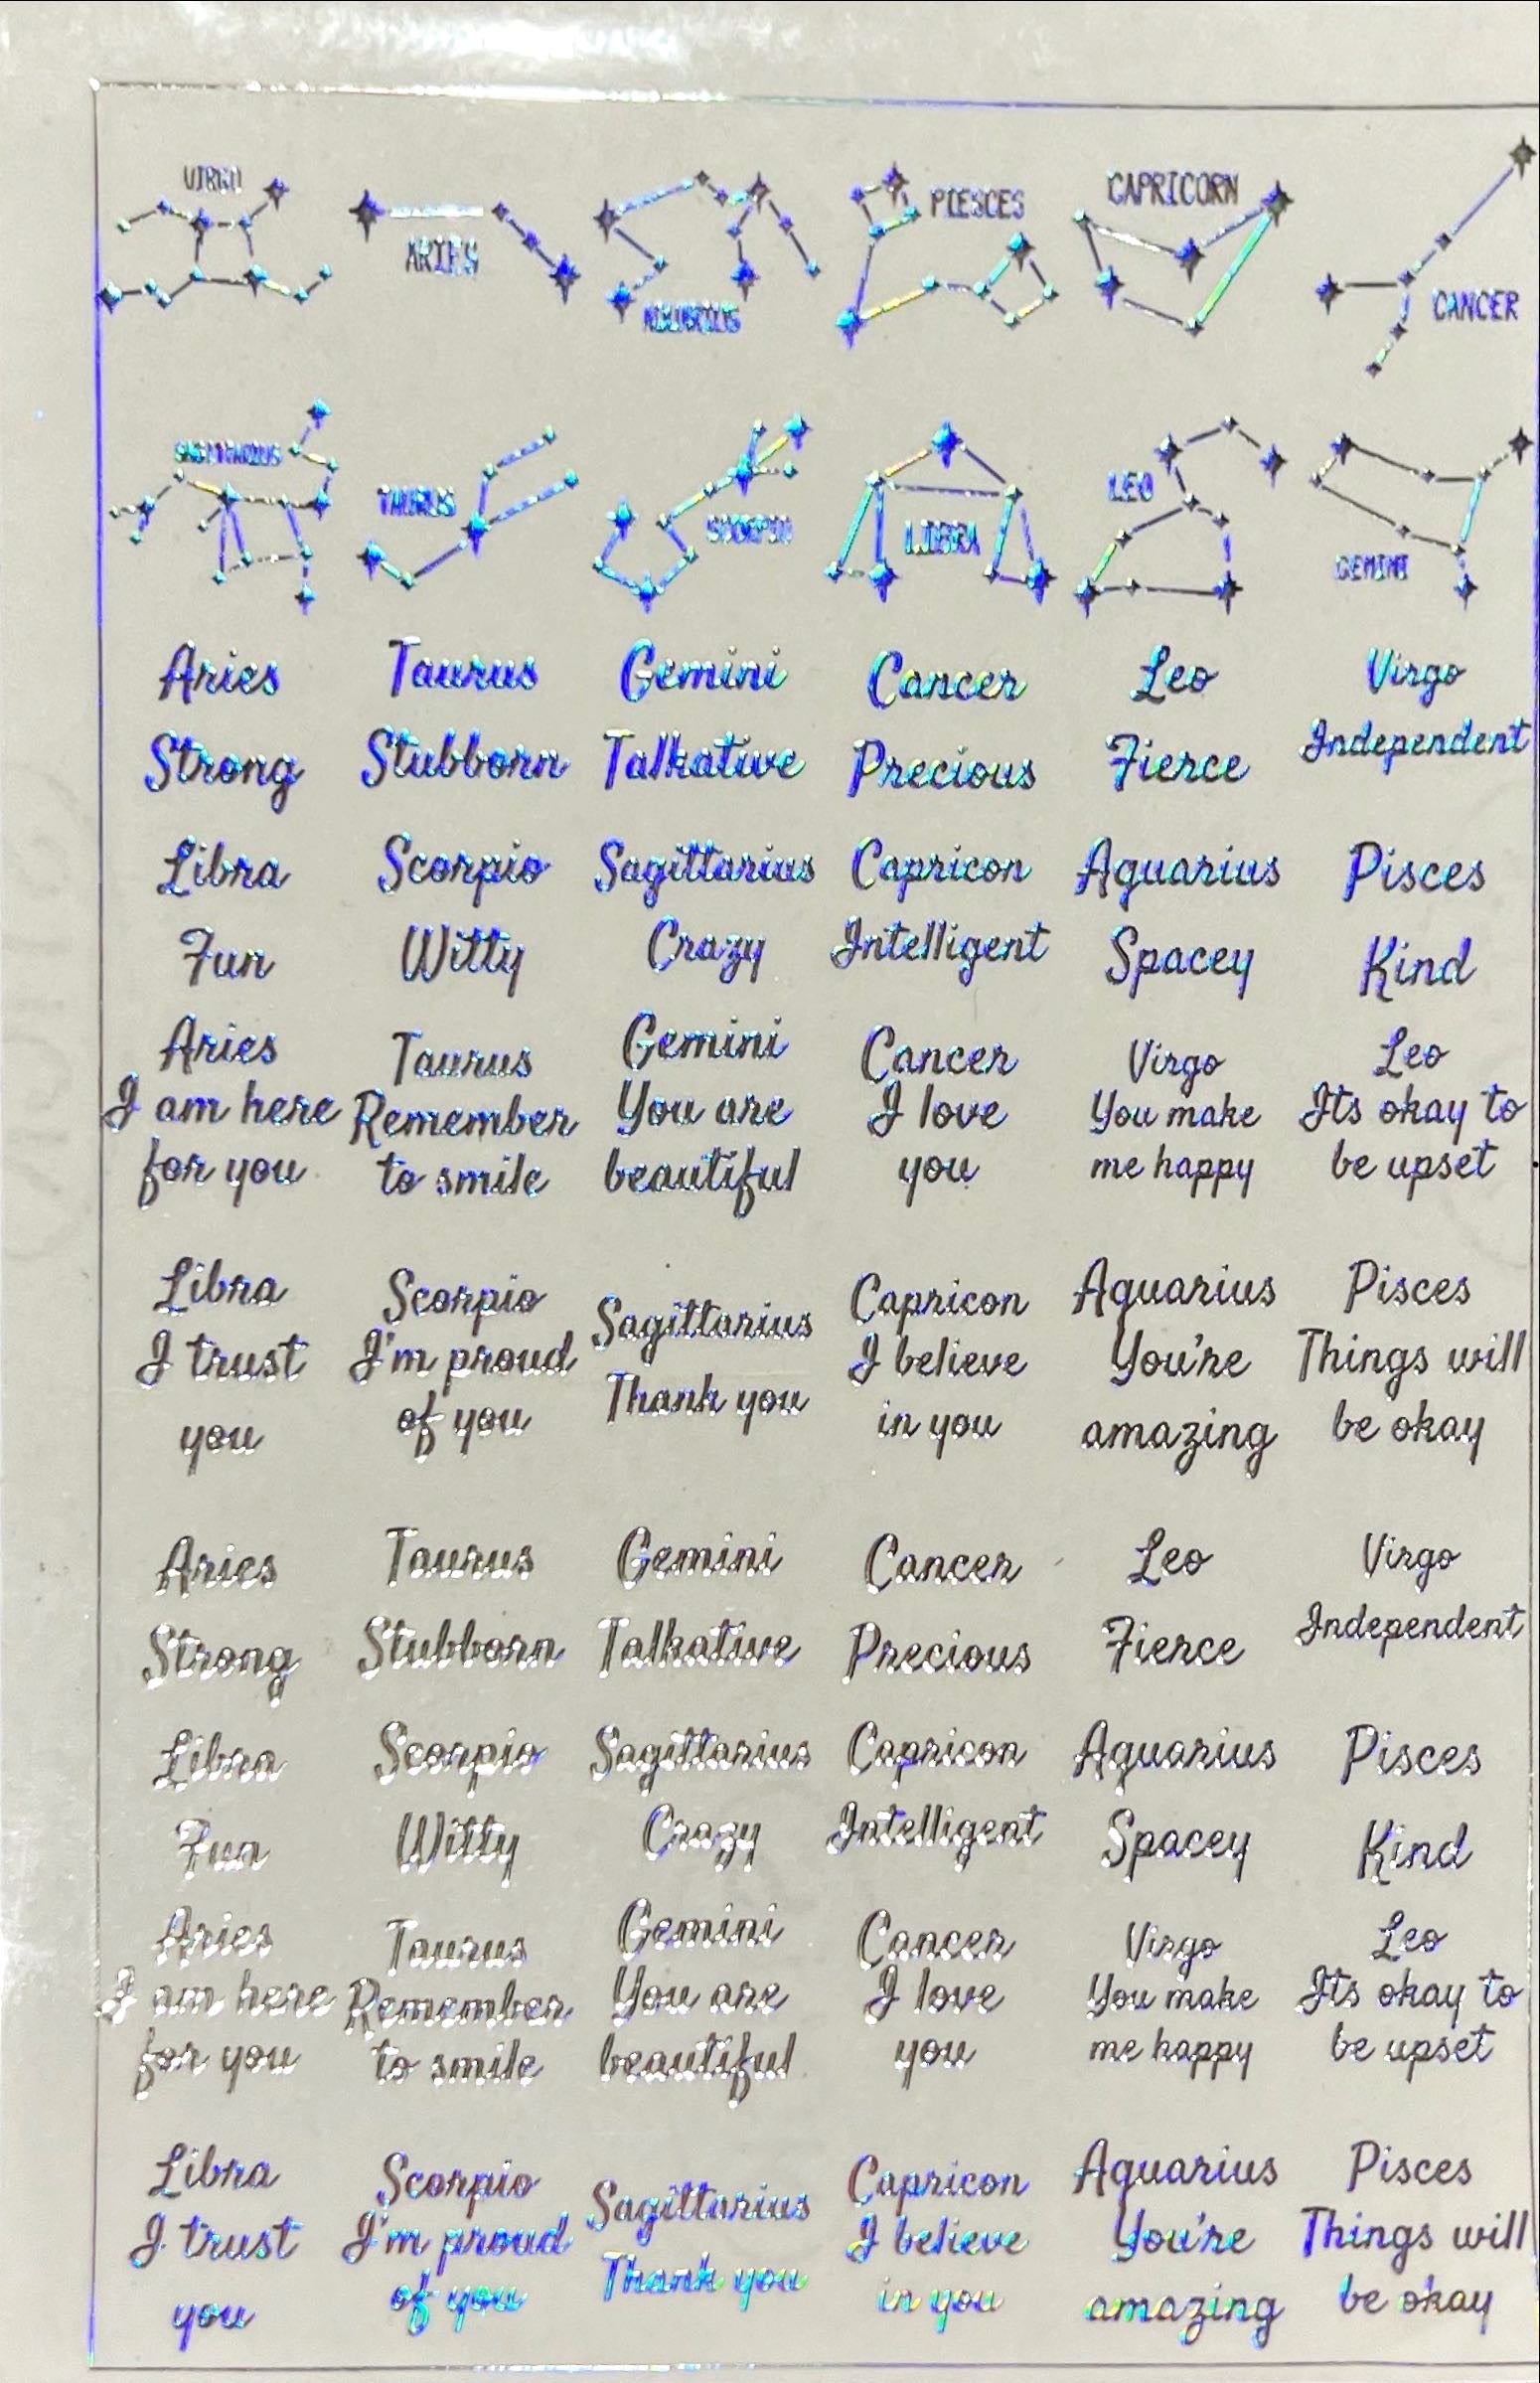 VIRGO
ARIES
AQUARIUS
PIESCES
CAPRICORN
CANCER
SAGITTARIUS
TAURUS
SCORPIO
LIBRA
LEO
GEMINI
Aries Taurus Gemini Cancer Leo Virgo
Strong Stubborn Talkative Precious Fierce Independent
Libra Scorpio Sagittarius Capricon Aquarius Pisces
Fun Witty Crazy Intelligent Spacey Kind
Aries Taurus Gemini Cancer Virgo Leo
I am here Remember You are I love You make Its okay to
for you to smile beautiful you me happy be upset
Libra Scorpio Sagittarius Capricon Aquarius Pisces
I trust I'm proud Thank you I believe You're Things will
you of you in you amazing be okay
Aries Taurus Gemini Cancer Leo Virgo
Strong Stubborn Talkative Precious Fierce Independent
Libra Scorpio Sagittarius Capricon Aquarius Pisces
Fun Witty Crazy Intelligent Spacey Kind
Aries Taurus Gemini Cancer Virgo Leo
I am here Remember You are I love You make Its okay to
for you to smile beautiful you me happy be upset
Libra Scorpio Sagittarius Capricon Aquarius Pisces
I trust I'm proud Thank you I believe You're Things will
you of you in you amazing be okay